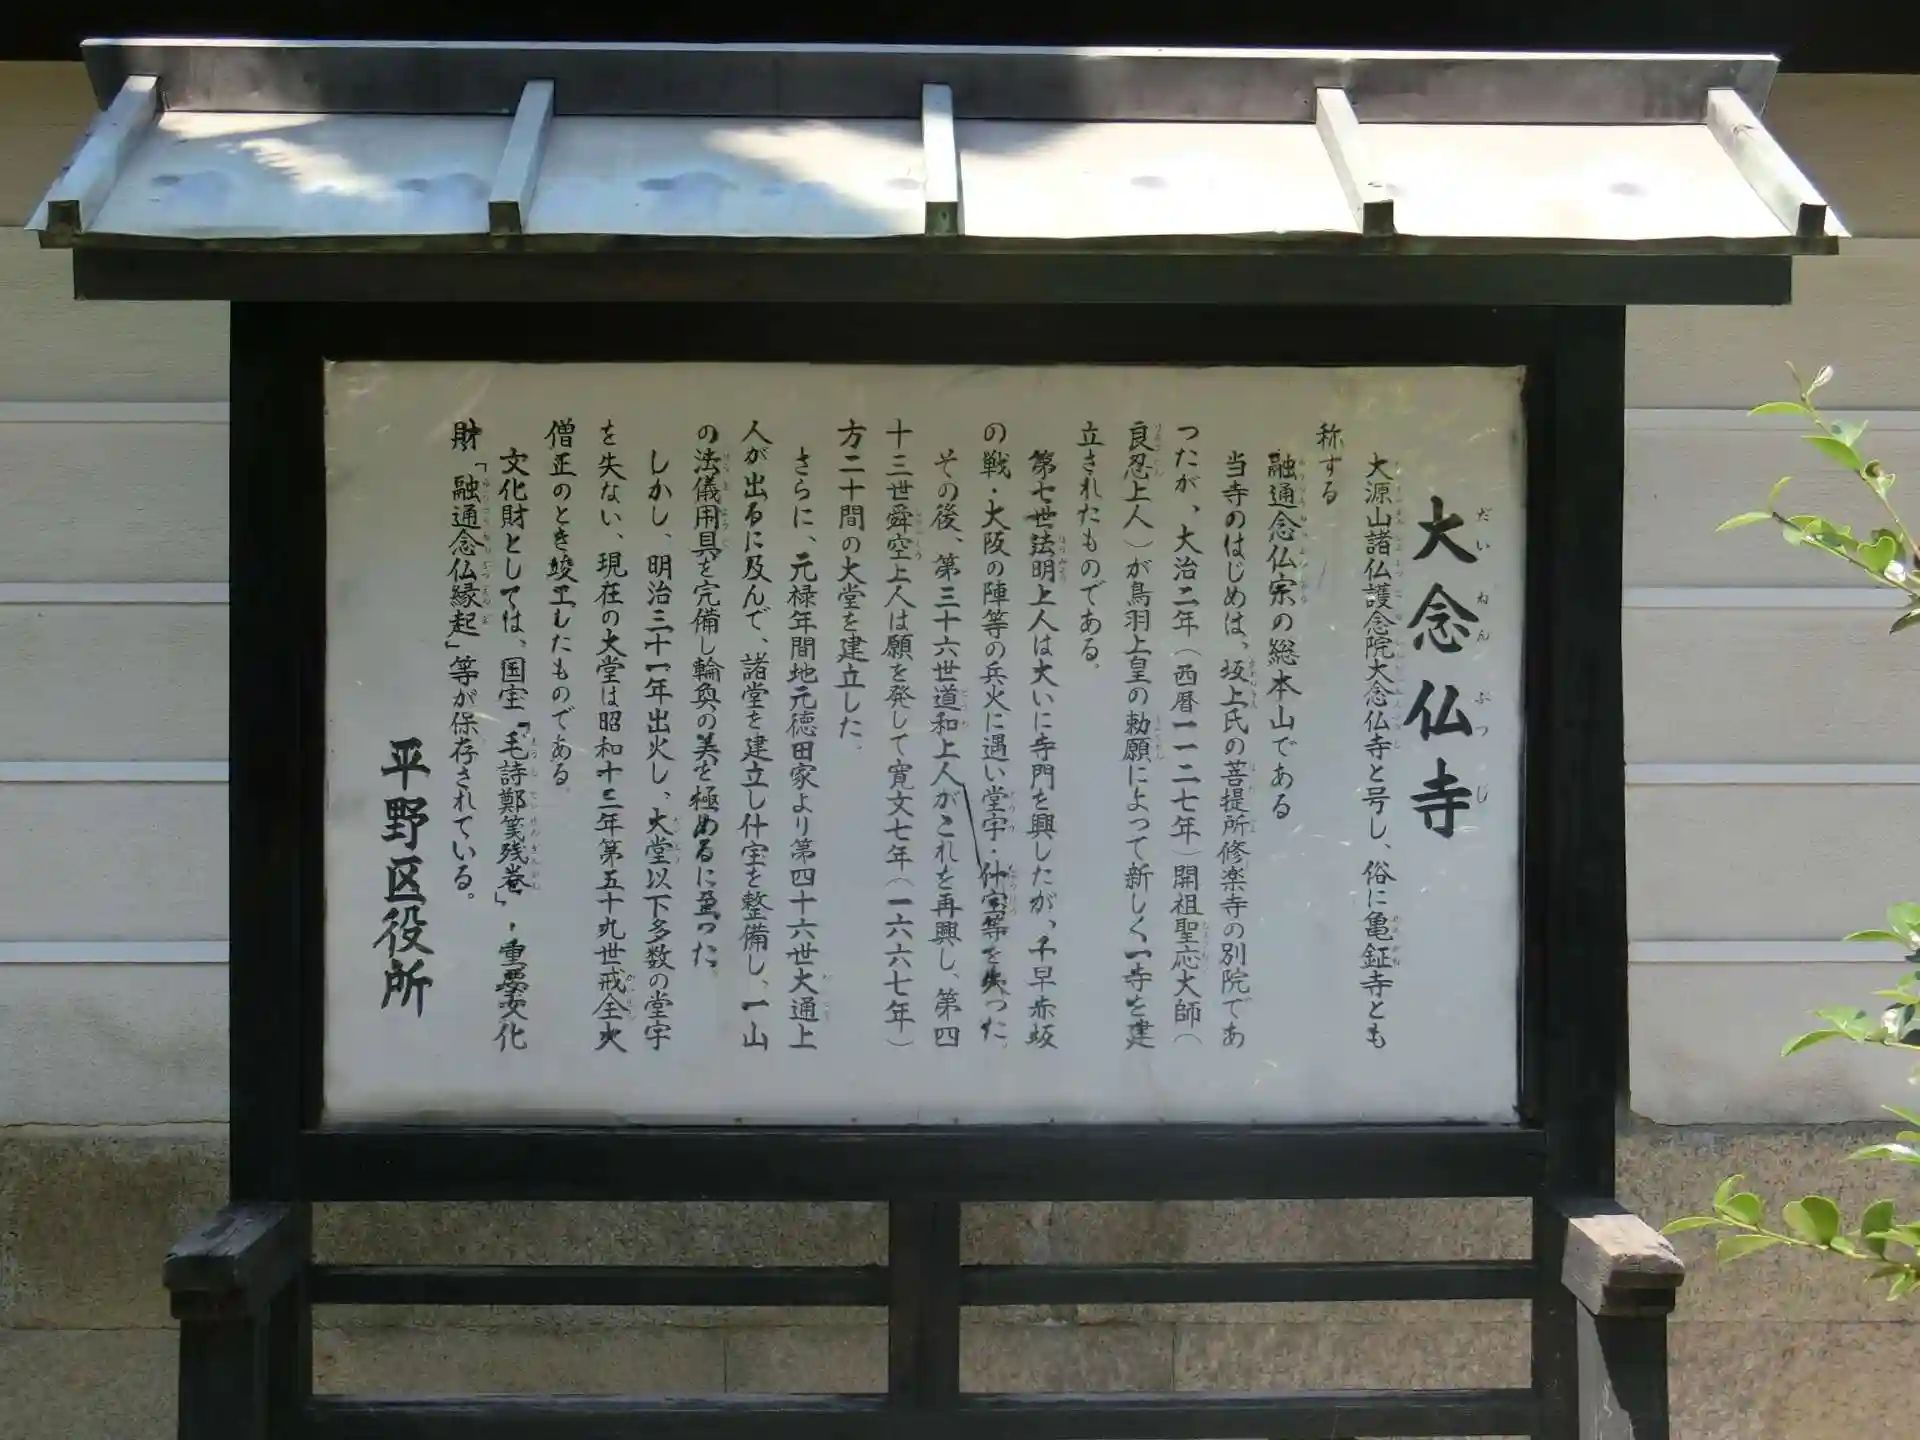 大念仏寺
大源山諸仏護念院大念仏寺と号し、俗に亀鉦寺とも
称する
融通念仏宗の総本山である
当寺のはじめは、坂上氏の菩提所修楽寺の別院であ
ったが、大治二年（西暦一一二七年）開祖聖応大師（
良忍上人）が鳥羽上皇の勅願によって新しく一寺を建
立されたものである。
第七世法明上人は大いに寺門を興したが、千早赤坂
の戦・大阪の陣等の兵火に遇い堂宇・什宝等を失った。
その後、第三十六世道和上人がこれを再興し、第四
十三世舜空上人は願を発して寛文七年（一六六七年）
方二十間の大堂を建立した。
さらに、元禄年間地元徳田家より第四十六世大通上
人が出るに及んで、諸堂を建立し什宝を整備し、一山
の法儀用具を完備し輪奐の美を極めるに至った。
しかし、明治三十一年出火し、大堂以下多数の堂宇
を失ない、現在の大堂は昭和十三年第五十九世戒全大
僧正のとき竣工したものである。
文化財としては、国宝「毛詩鄭箋残巻」・重要文化
財「融通念仏縁起」等が保存されている。
平野区役所